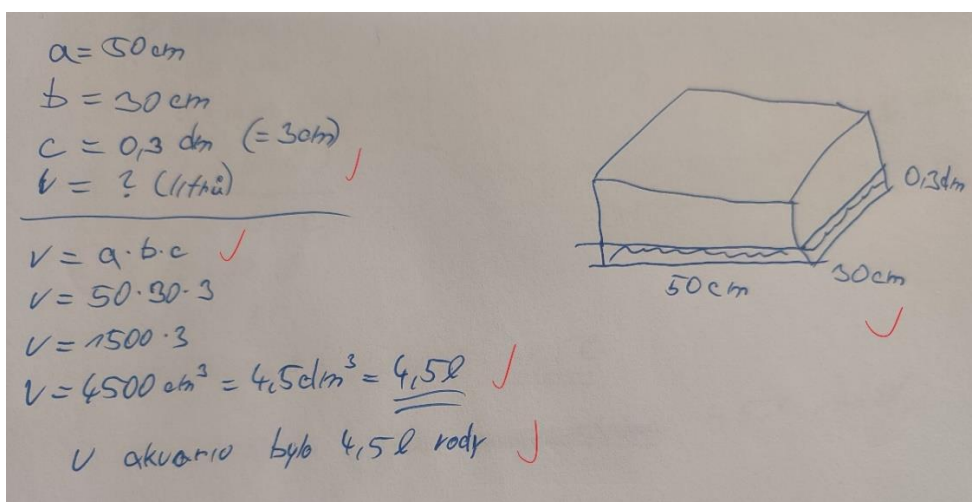 a = 50 cm
b = 30 cm
c = 0,3 dm (= 3cm)
V = ? (litrů)
V = a·b·c
V = 50·30·3
V = 1500·3
V = 4500 cm³ = 4,5dm³ = 4,5l
V akvário bylo 4,5l vody
0,3dm
30cm
50cm